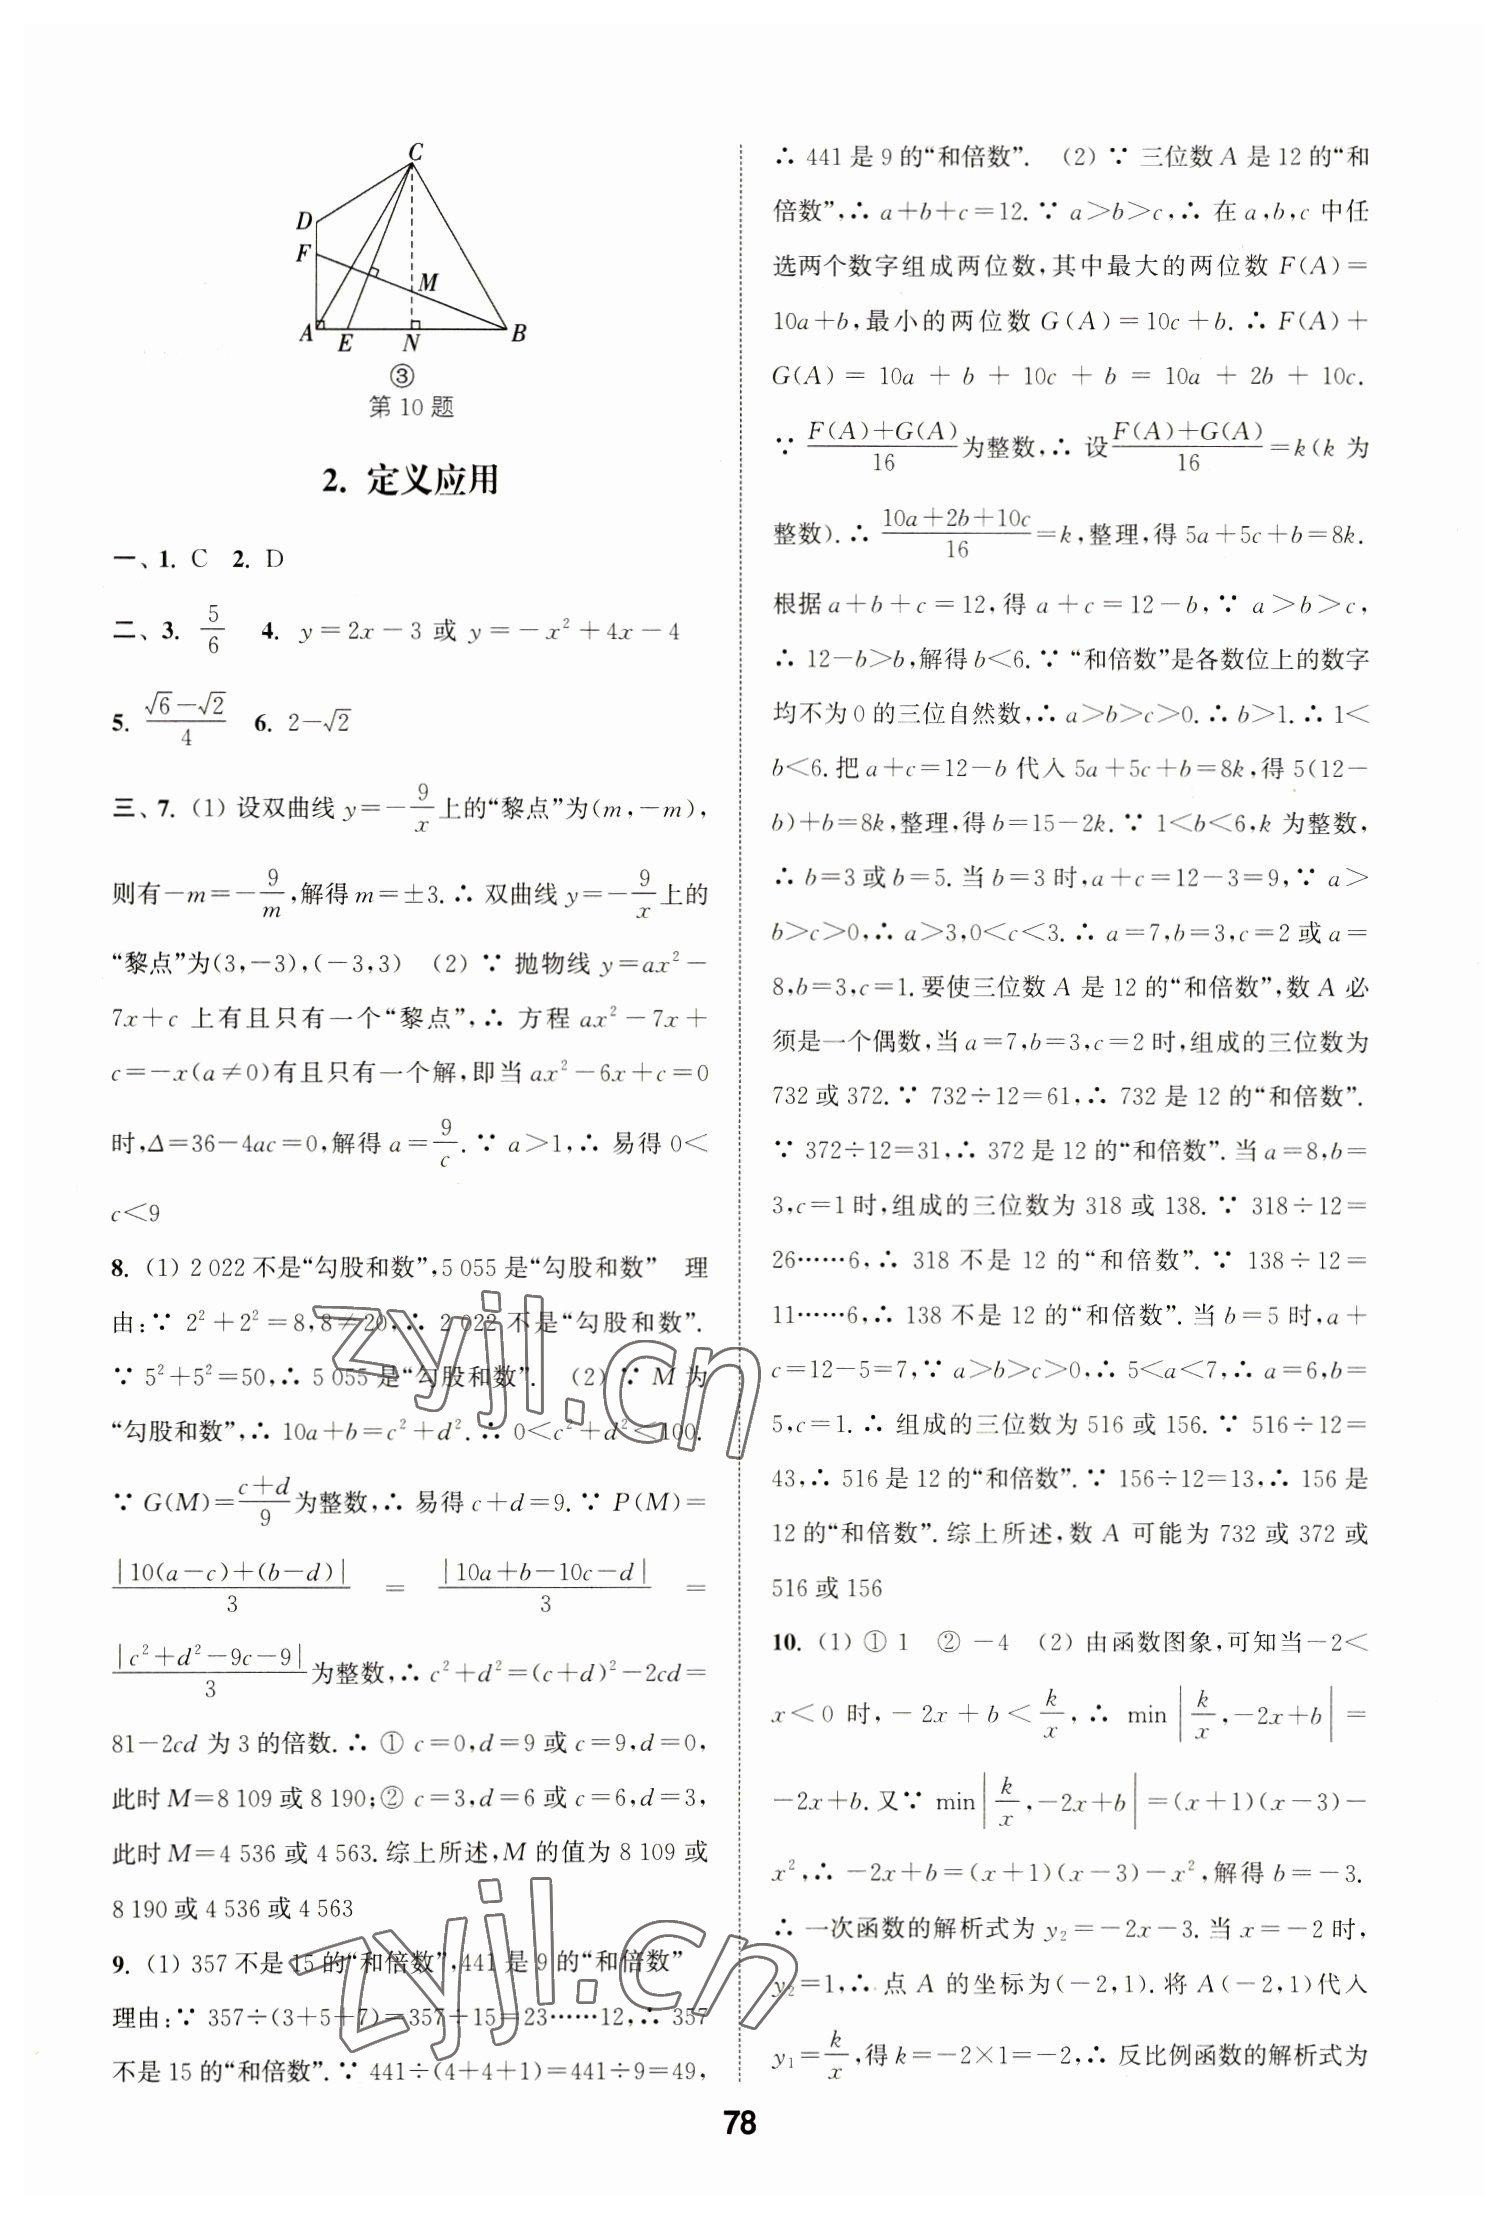 C
D
F
M
A
E
N
B
③
第10题
2. 定义应用
一、1. C 2. D
二、3. 5/6 4. y=2x-3 或 y=-x²+4x-4
5. (√6-√2)/4 6. 2-√2
三、7. (1) 设双曲线 y=-9/x 上的“黎点”为(m,-m),
则有-m=-9/m,解得 m=±3.∴ 双曲线 y=-9/x 上的
“黎点”为(3,-3),(-3,3) (2) ∵ 抛物线 y=ax²-
7x+c 上有且只有一个“黎点”,∴ 方程 ax²-7x+
c=-x(a≠0)有且只有一个解,即当 ax²-6x+c=0
时,Δ=36-4ac=0,解得 a=9/c.∵ a>1,∴ 易得 0<
c<9
8. (1) 2 022 不是“勾股和数”,5 055 是“勾股和数” 理
由:∵ 2²+2²=8,8≠20,∴ 2 022 不是“勾股和数”.
∵ 5²+5²=50,∴ 5 055 是“勾股和数”. (2) ∵ M 为
“勾股和数”,∴ 10a+b=c²+d².∴ 0<c²+d²<100.
∵ G(M)=(c+d)/9 为整数,∴ 易得 c+d=9.∵ P(M)=
|10(a-c)+(b-d)|/3 = |10a+b-10c-d|/3 =
|c²+d²-9c-9|/3 为整数,∴ c²+d²=(c+d)²-2cd=
81-2cd 为 3 的倍数.∴ ① c=0,d=9 或 c=9,d=0,
此时 M=8 109 或 8 190;② c=3,d=6 或 c=6,d=3,
此时 M=4 536 或 4 563.综上所述,M 的值为 8 109 或
8 190 或 4 536 或 4 563
9. (1) 357 不是 15 的“和倍数”,441 是 9 的“和倍数”
理由:∵ 357÷(3+5+7)=357÷15=23……12,∴ 357
不是 15 的“和倍数”.∵ 441÷(4+4+1)=441÷9=49,
∴ 441 是 9 的“和倍数”. (2) ∵ 三位数 A 是 12 的“和
倍数”,∴ a+b+c=12.∵ a>b>c,∴ 在 a,b,c 中任
选两个数字组成两位数,其中最大的两位数 F(A)=
10a+b,最小的两位数 G(A)=10c+b.∴ F(A)+
G(A)=10a+b+10c+b=10a+2b+10c.
∵ (F(A)+G(A))/16 为整数,∴ 设 (F(A)+G(A))/16=k(k 为
整数).∴ (10a+2b+10c)/16=k,整理,得 5a+5c+b=8k.
根据 a+b+c=12,得 a+c=12-b,∵ a>b>c,
∴ 12-b>b,解得 b<6.∵ “和倍数”是各数位上的数字
均不为 0 的三位自然数,∴ a>b>c>0.∴ b>1.∴ 1<
b<6.把 a+c=12-b 代入 5a+5c+b=8k,得 5(12-
b)+b=8k,整理,得 b=15-2k.∵ 1<b<6,k 为整数,
∴ b=3 或 b=5.当 b=3 时,a+c=12-3=9,∵ a>
b>c>0,∴ a>3,0<c<3.∴ a=7,b=3,c=2 或 a=
8,b=3,c=1.要使三位数 A 是 12 的“和倍数”,数 A 必
须是一个偶数,当 a=7,b=3,c=2 时,组成的三位数为
732 或 372.∵ 732÷12=61,∴ 732 是 12 的“和倍数”.
∵ 372÷12=31,∴ 372 是 12 的“和倍数”.当 a=8,b=
3,c=1 时,组成的三位数为 318 或 138.∵ 318÷12=
26……6,∴ 318 不是 12 的“和倍数”.∵ 138÷12=
11……6,∴ 138 不是 12 的“和倍数”.当 b=5 时,a+
c=12-5=7,∵ a>b>c>0,∴ 5<a<7,∴ a=6,b=
5,c=1.∴ 组成的三位数为 516 或 156.∵ 516÷12=
43,∴ 516 是 12 的“和倍数”.∵ 156÷12=13,∴ 156 是
12 的“和倍数”.综上所述,数 A 可能为 732 或 372 或
516 或 156
10. (1) ① 1 ② -4 (2) 由函数图象,可知当-2<
x<0 时,-2x+b<k/x,∴ min|k/x,-2x+b|=
-2x+b.又∵ min|k/x,-2x+b|=(x+1)(x-3)-
x²,∴ -2x+b=(x+1)(x-3)-x²,解得 b=-3.
∴ 一次函数的解析式为 y₂=-2x-3.当 x=-2 时,
y₂=1,∴ 点 A 的坐标为(-2,1).将 A(-2,1)代入
y₁=k/x,得 k=-2×1=-2,∴ 反比例函数的解析式为
78
zyjl.cn
zyjl.cn